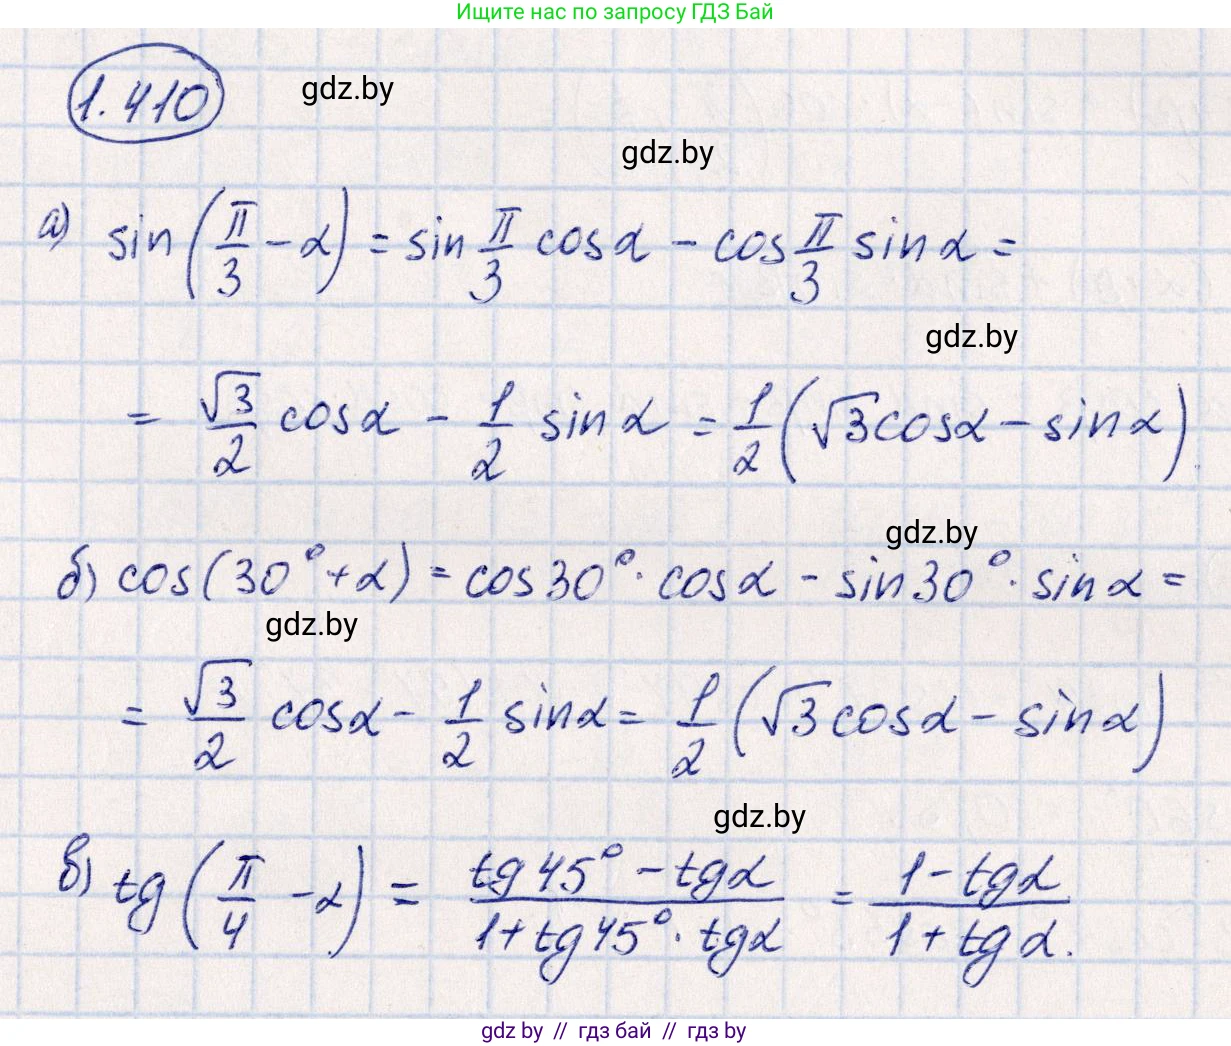 Ищите нас по запросу ГДЗ Бай
1.410
gdz.by
gdz.by
а) sin(π/3 - α) = sin π/3 cosα - cos π/3 sinα =
gdz.by
= √3/2 cosα - 1/2 sinα = 1/2 (√3cosα - sinα).
gdz.by
б) cos(30° + α) = cos30° · cosα - sin30° · sinα =
gdz.by
= √3/2 cosα - 1/2 sinα = 1/2 (√3cosα - sinα)
gdz.by
в) tg(π/4 - α) = (tg45° - tgα)/(1 + tg45° · tgα) = (1 - tgα)/(1 + tgα).
gdz.by // гдз бай // гдз by